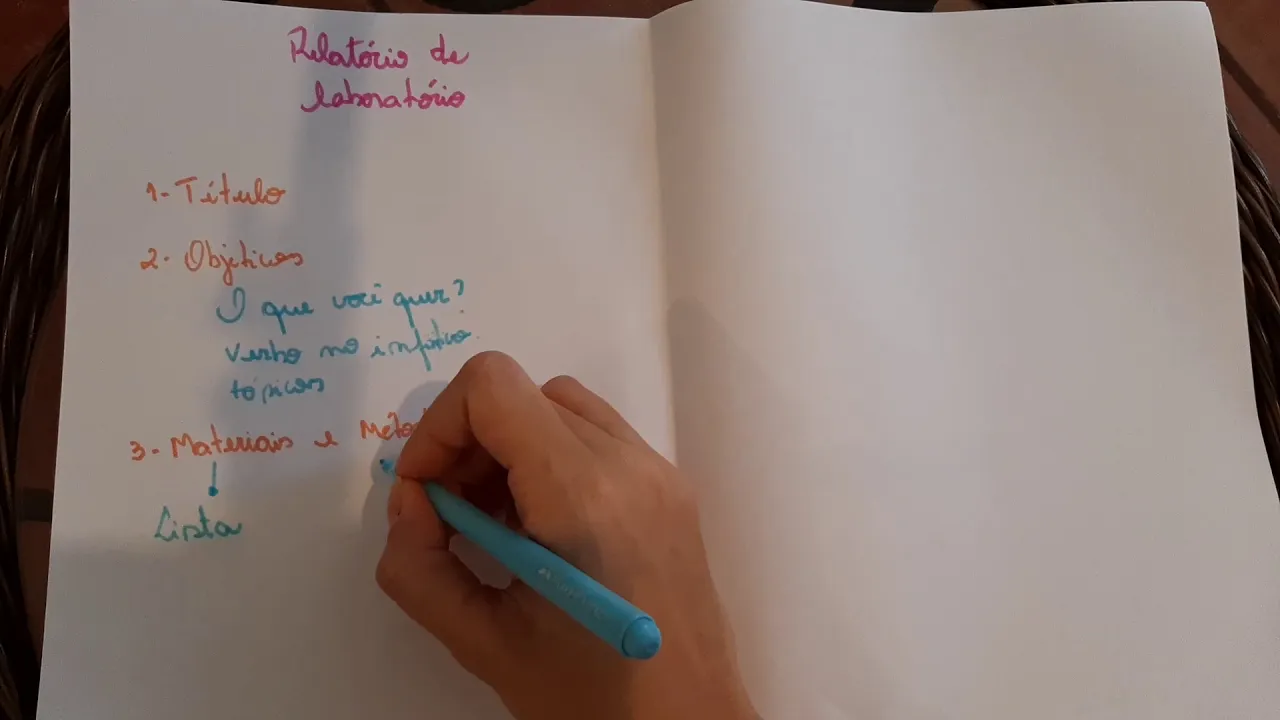 Relatório de
laboratório
1- Título
2- Objetivos
O que você quer?
verbo no infinitivo.
tópicos
3- Materiais e
Lista